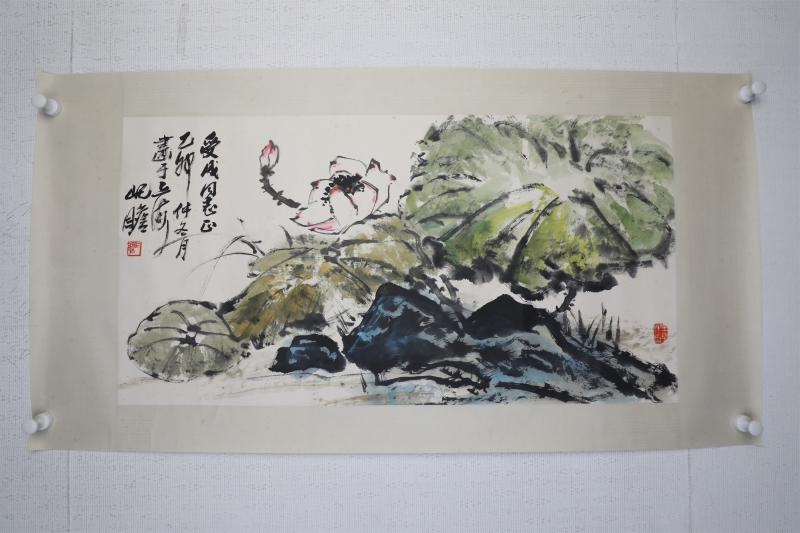 受成同志正
乙卯仲冬月
畫于上海
屺瞻